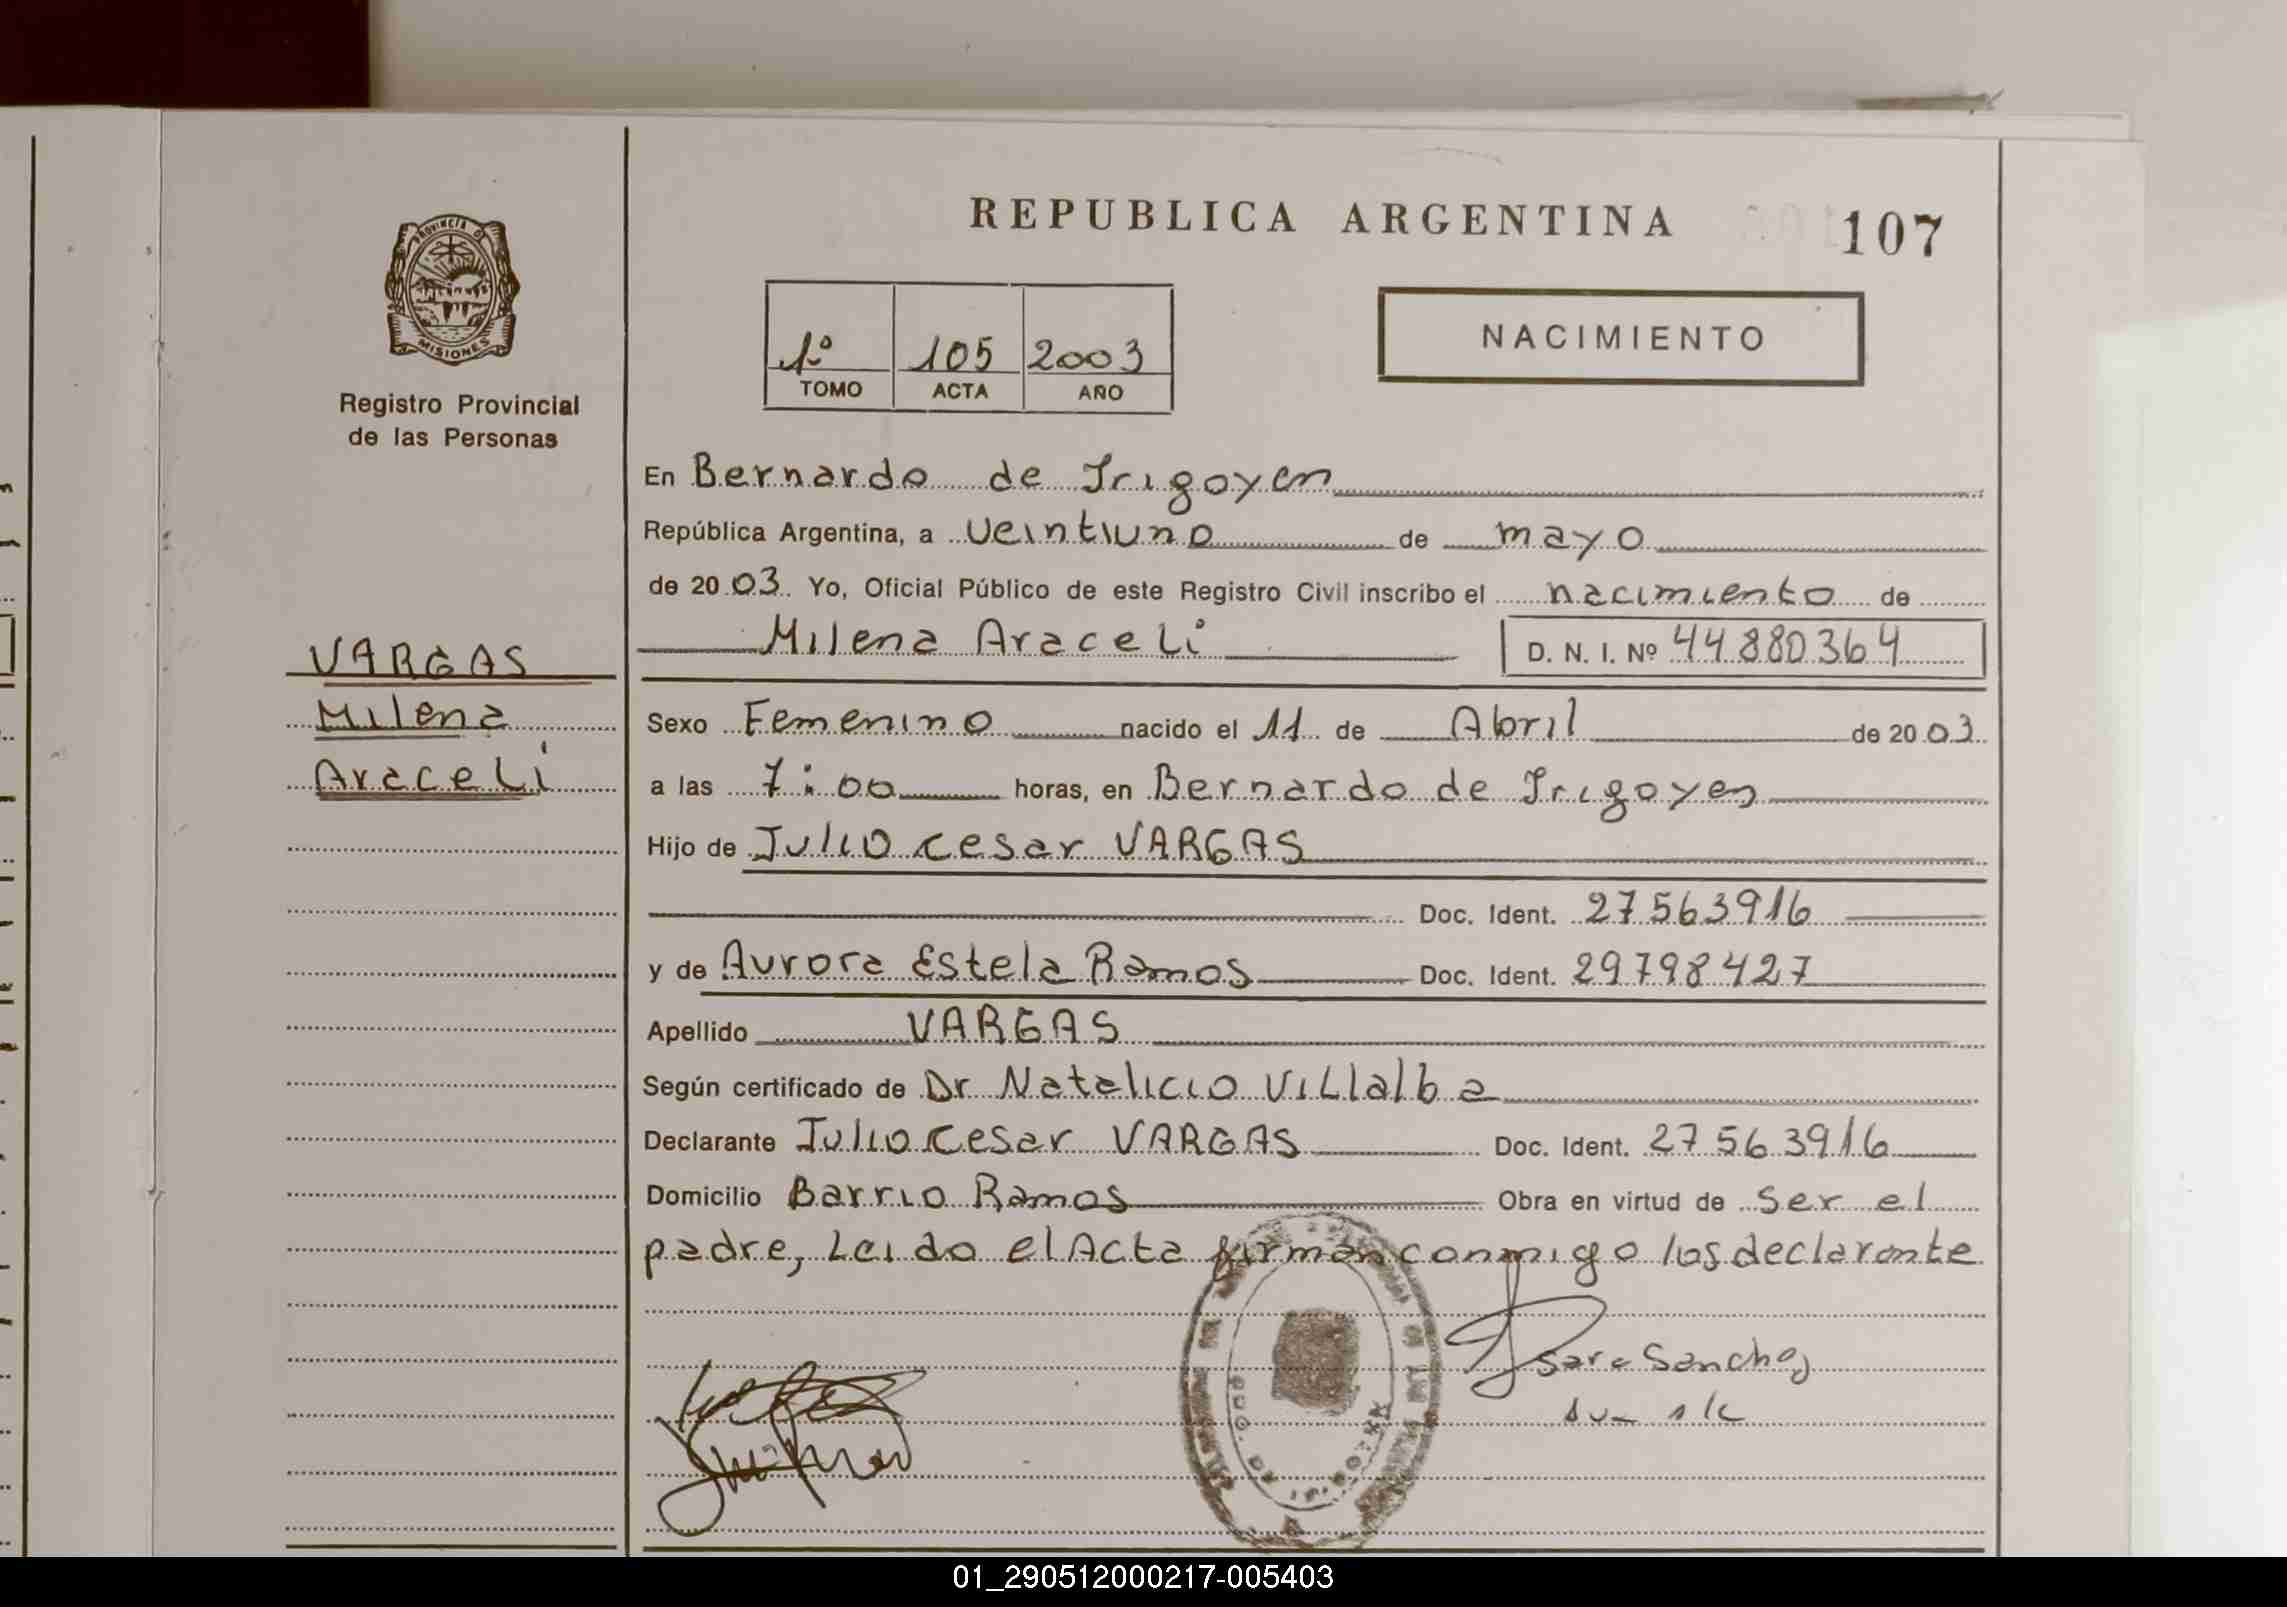 PROVINCIA D
MISIONES
Registro Provincial
de las Personas
VARGAS
Milena
Araceli
REPUBLICA ARGENTINA 107
1º 105 2003
TOMO ACTA AÑO
NACIMIENTO
En Bernardo de Irigoyen
República Argentina, a veintiuno de mayo
de 2003. Yo, Oficial Público de este Registro Civil inscribo el nacimiento de
Milena Araceli D. N. I. Nº 44880364
Sexo Femenino nacido el 11 de Abril de 2003
a las 7:00 horas, en Bernardo de Irigoyen
Hijo de Julio cesar VARGAS
Doc. Ident. 27563916
y de Aurora Estela Ramos Doc. Ident. 29798427
Apellido VARGAS
Según certificado de Dr Natalicio Villalba
Declarante Julio cesar VARGAS Doc. Ident. 27563916
Domicilio Barrio Ramos Obra en virtud de ser el
padre, Leido el Acta firman conmigo los declarante
Sara Sanchez
01_290512000217-005403